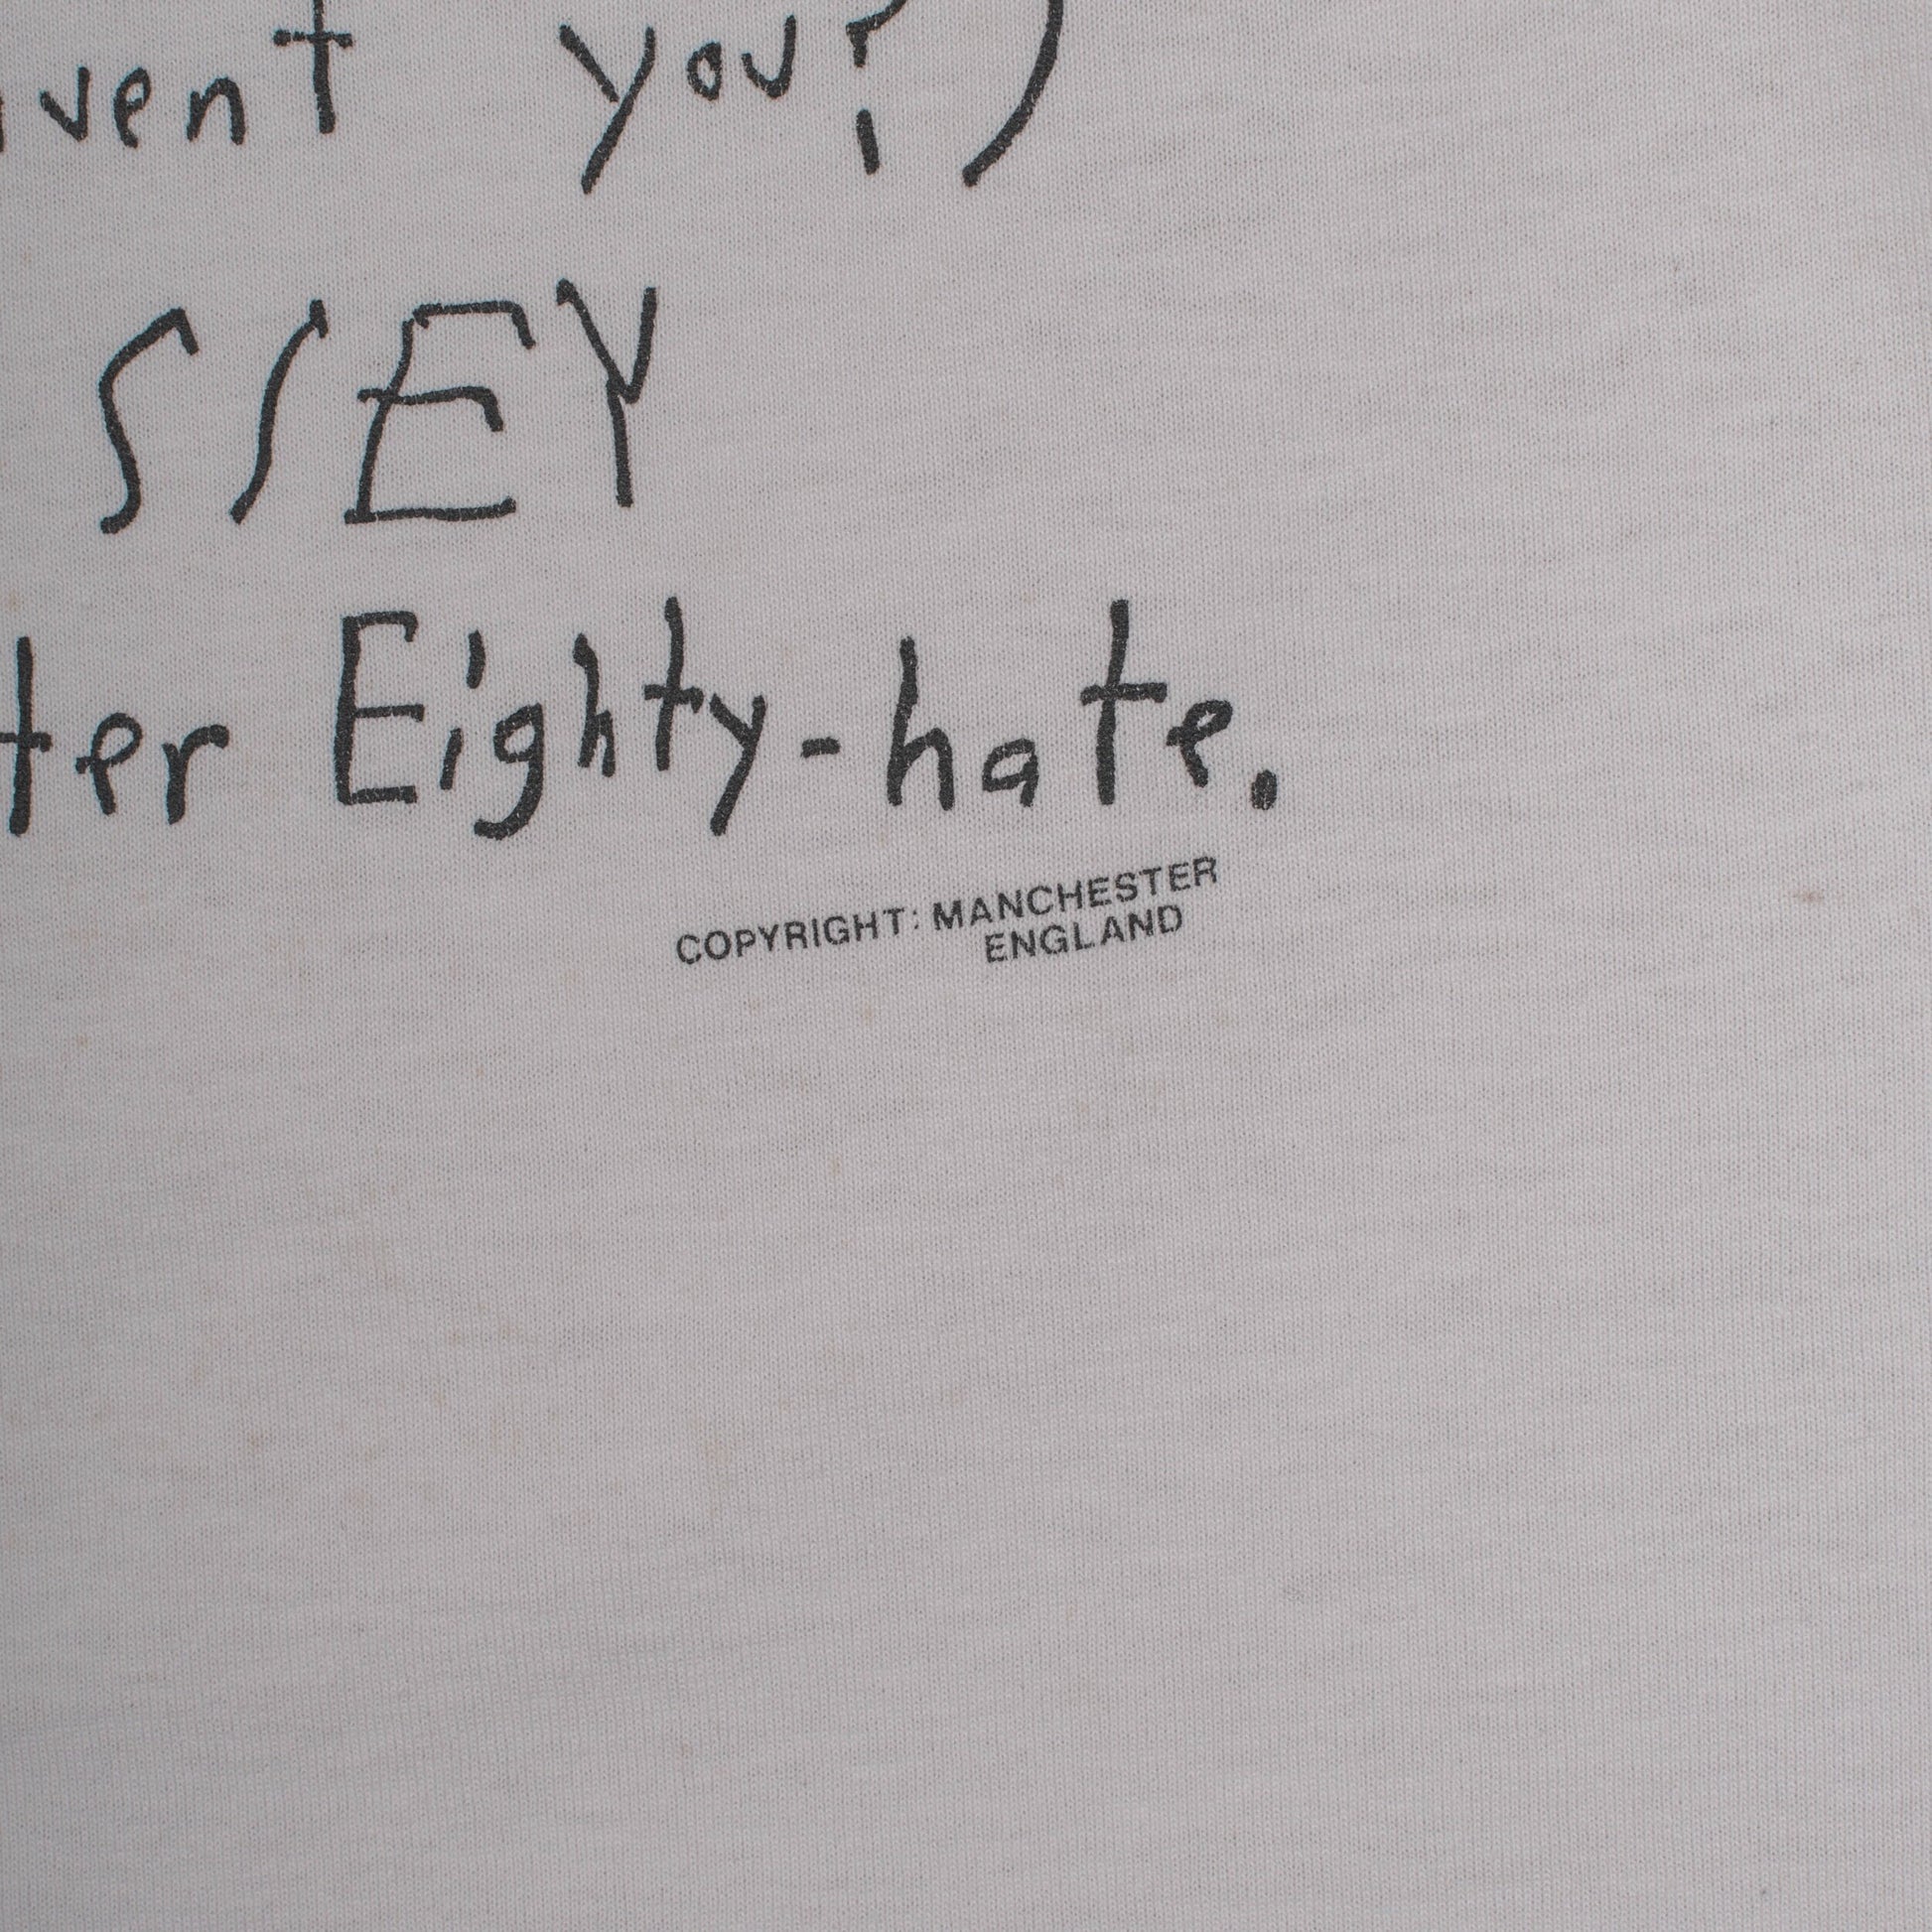 vent you?)
SSEY
ter Eighty-hate.
COPYRIGHT: MANCHESTER
ENGLAND